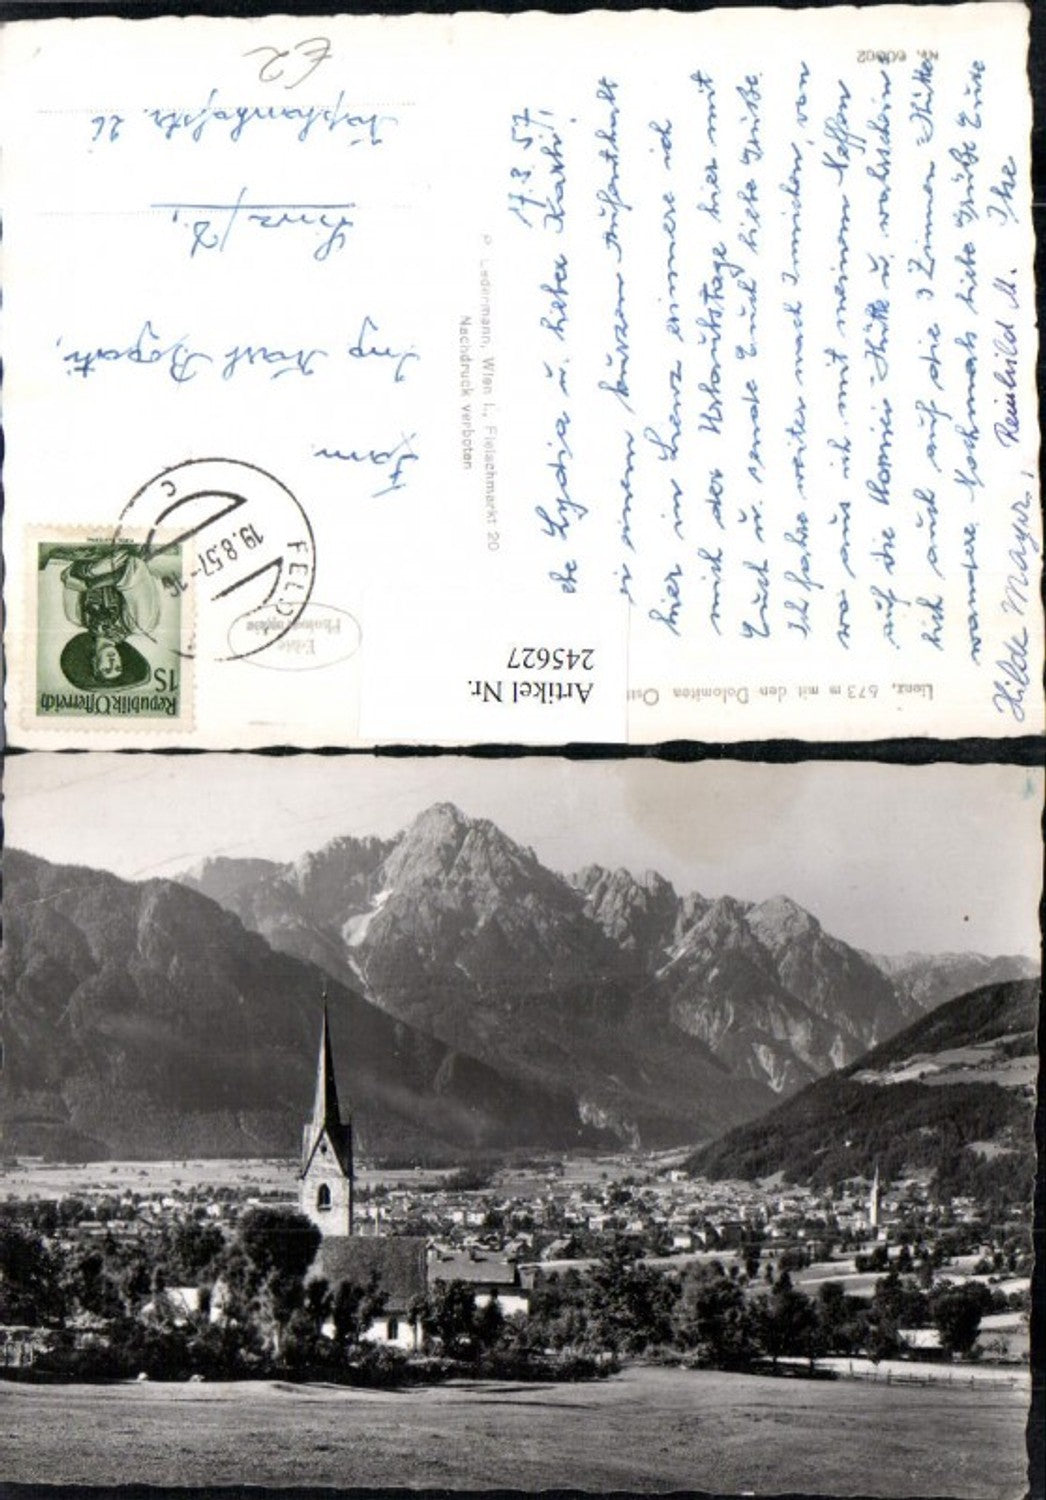 Nr. 60902
17.8.57
Lydia u. lieber Karli!
einem kurzen Aufenthalt
hier in Lienz erinnere ich
mich der Urlaubstage hier mit
Euch u. sende Euch liebe Grüße.
Ich fahre weiter nach Innichen, von
wo aus ich mit meinem Neffen
auf die Hütte u. wahrschein
lich auch auf die 3 Zinnen Hütte
wandere. Nochmals liebe Grüße Eure
Hilde Mayr, Reinhild M. Ihse
Lienz, 673 m mit den Dolomiten Ost
P. Ledermann, Wien I., Fleischmarkt 20
Nachdruck verboten
Artikel Nr.
245627
€2
Fam.
Ing Karl
Linz/D.,
26
Echte
Photographie
FELD
19.8.57-16
c
1S
Republik Österreich